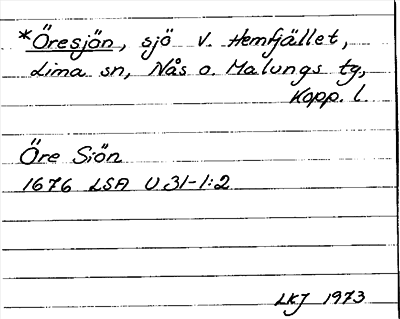 *Öresjön, sjö v. Hemfjället,
Lima sn, Nås o. Malungs tg,
Kopp. l.
Öre Siön
1676 LSA U 31-1:2
LKJ 1973